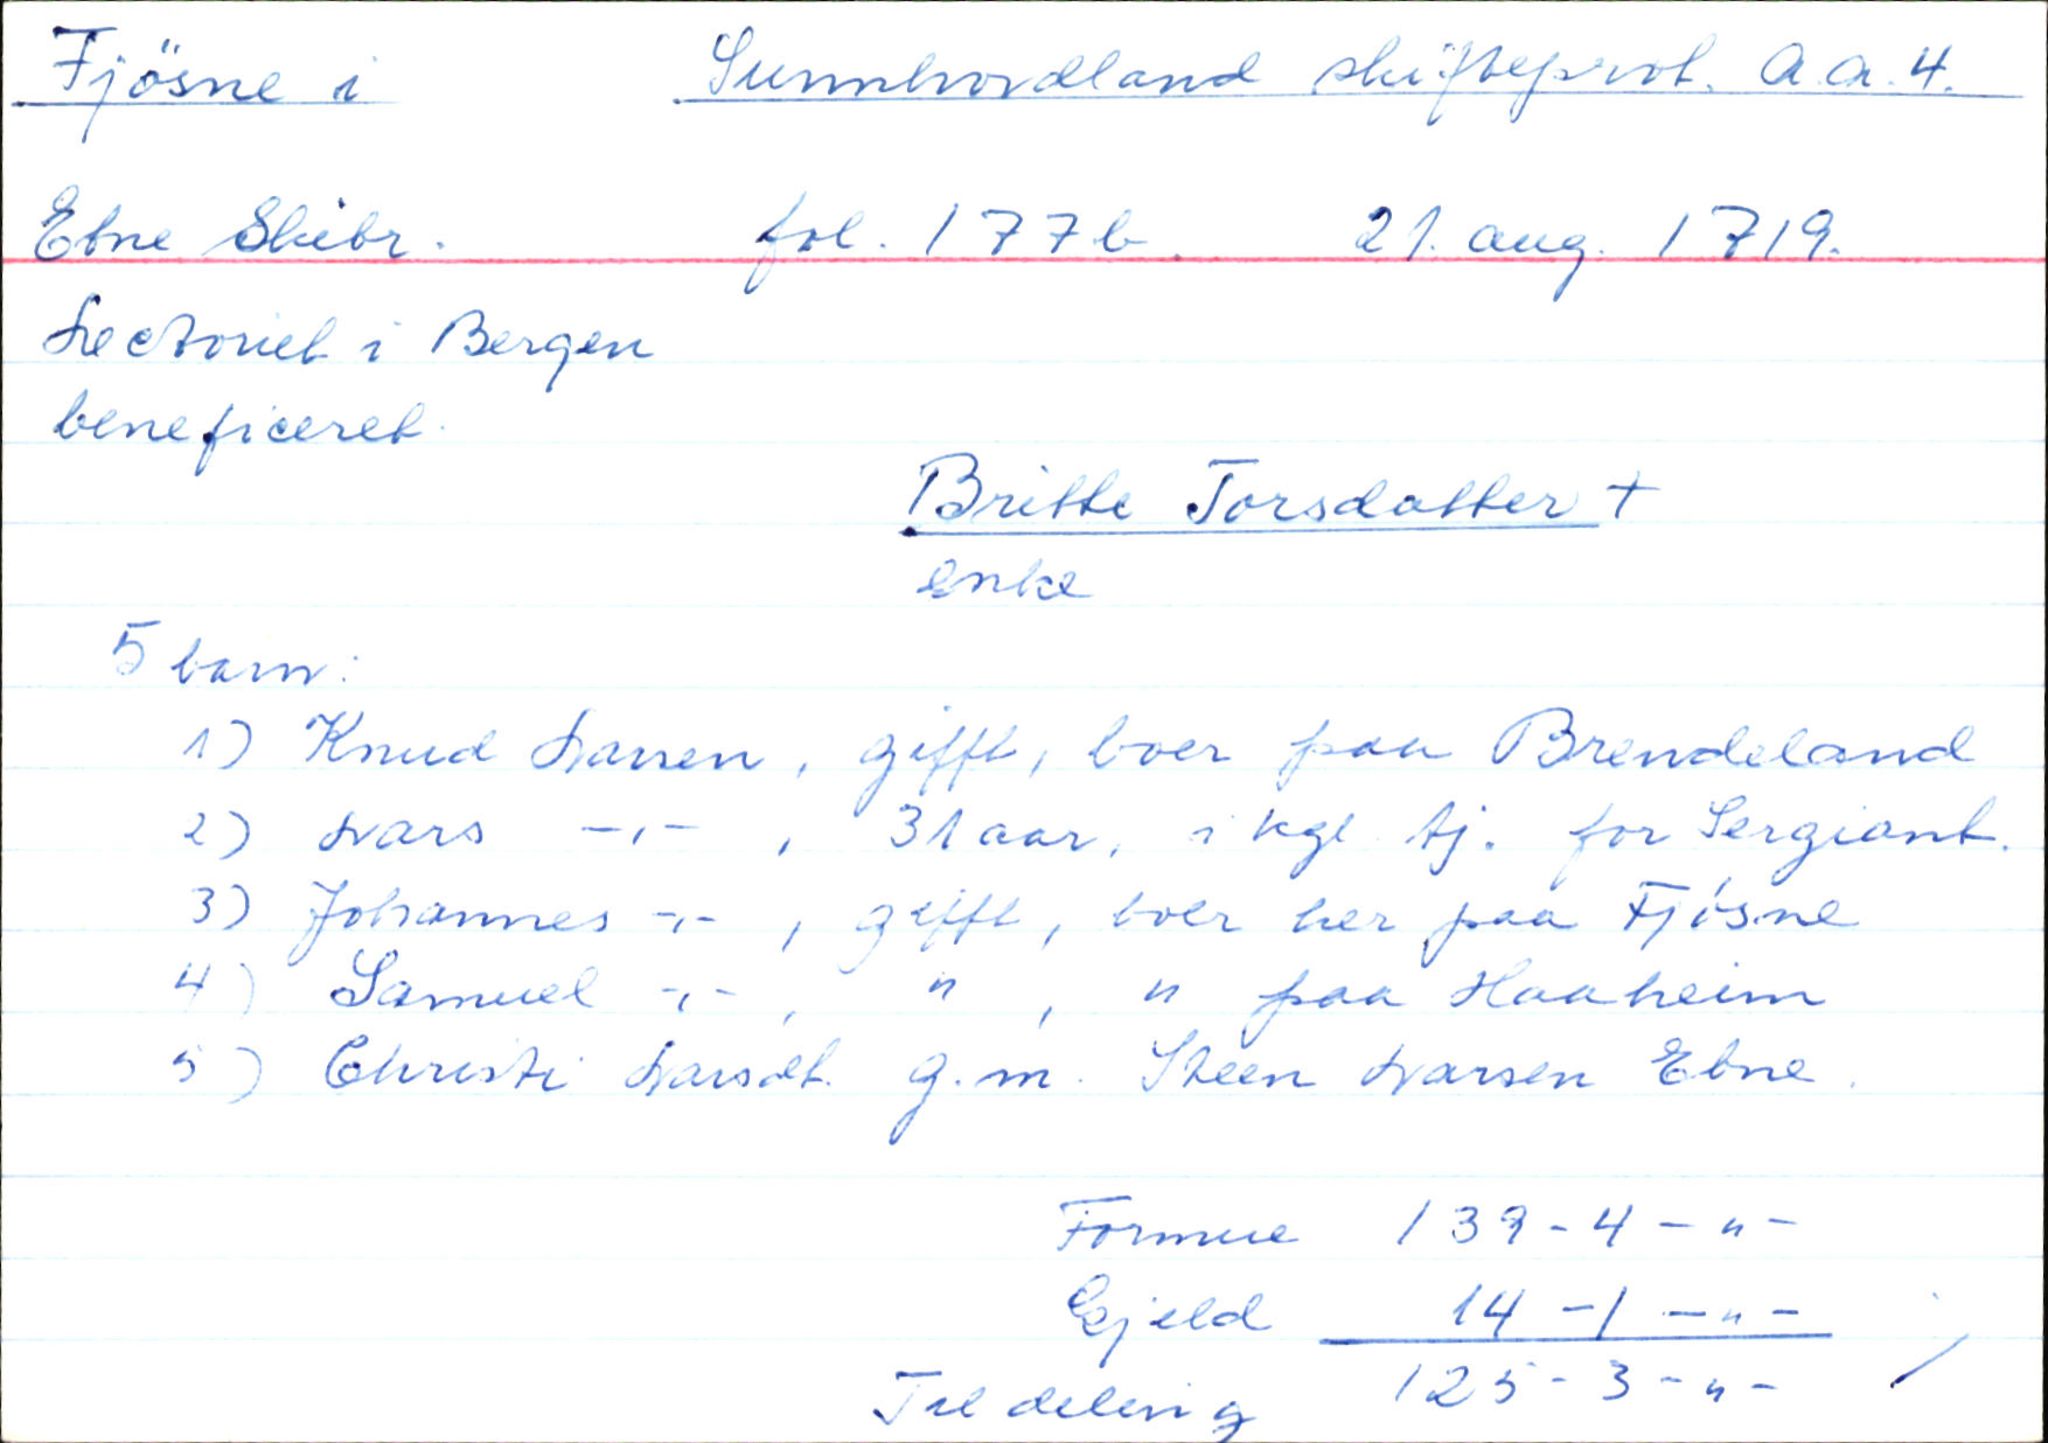 Fjösne i Sunnhordland skifteprot. A.a.4.
Etne Skibr. fol. 177b. 21. aug. 1719.
Lectoriet i Bergen
beneficeret.
Britte Torsdatter +
enke
5 barn:
1) Knud Larsen, gifft, boer paa Brendeland
2) Lars -,,- , 31 aar, i kgl. tj. for Sergiant.
3) Johannes -,,- , gifft, boer her paa Fjösne
4) Samuel -,,- , " , " paa Haaheim
5) Christi Larsdt. g.m. Steen Larsen Etne.
Formue 139 - 4 - " -
Gjeld 14 - 1 - " -
Til deling 125 - 3 - " -